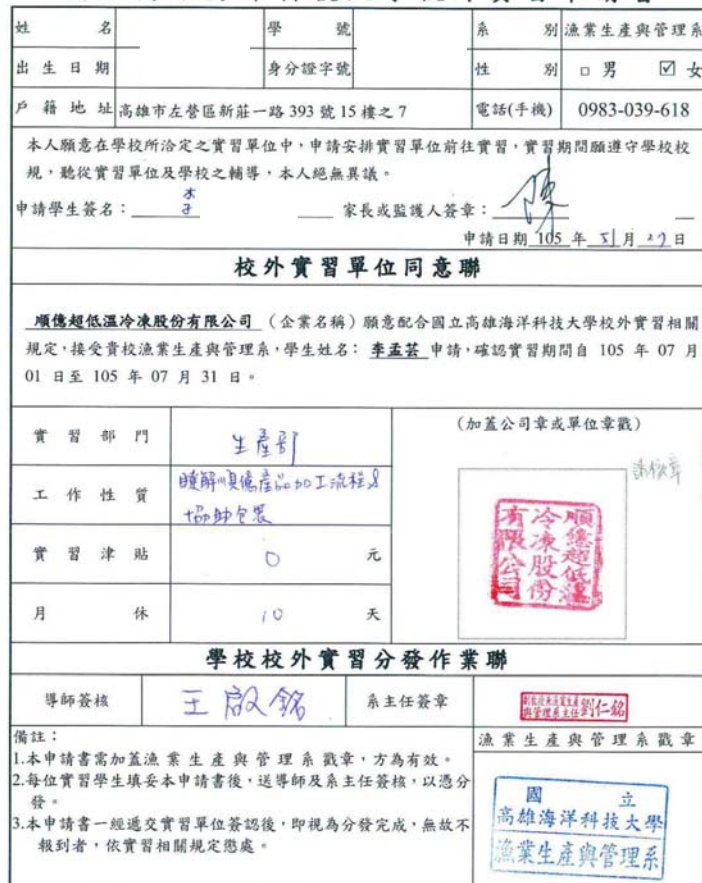 姓 名 學 號 系 別 漁業生產與管理系
出生日期 身分證字號 性 別 □ 男 ☑ 女
戶籍地址 高雄市左營區新莊一路 393 號 15 樓之 7 電話(手機) 0983-039-618
本人願意在學校所洽定之實習單位中，申請安排實習單位前往實習，實習期間願遵守學校校
規，聽從實習單位及學校之輔導，本人絕無異議。
申請學生簽名： 李 家長或監護人簽章： 陳
申請日期 105 年 5 月 27 日
校外實習單位同意聯
順億超低溫冷凍股份有限公司 （企業名稱）願意配合國立高雄海洋科技大學校外實習相關
規定，接受貴校漁業生產與管理系，學生姓名： 李孟芸 申請，確認實習期間自 105 年 07 月
01 日至 105 年 07 月 31 日。
實習部門 生產部
(加蓋公司章或單位章戳)
工作性質 瞭解順億產品加工流程及
協助包裝
順億超低溫
冷凍股份
有限公司
實習津貼 0 元
月 休 10 天
學校校外實習分發作業聯
導師簽核 王啟銘 系主任簽章 與管理系主任 劉仁銘
備註：
1.本申請書需加蓋漁業生產與管理系戳章，方為有效。
2.每位實習學生填妥本申請書後，送導師及系主任簽核，以憑分
發。
3.本申請書一經遞交實習單位簽認後，即視為分發完成，無故不
報到者，依實習相關規定懲處。
漁業生產與管理系戳章
國 立
高雄海洋科技大學
漁業生產與管理系